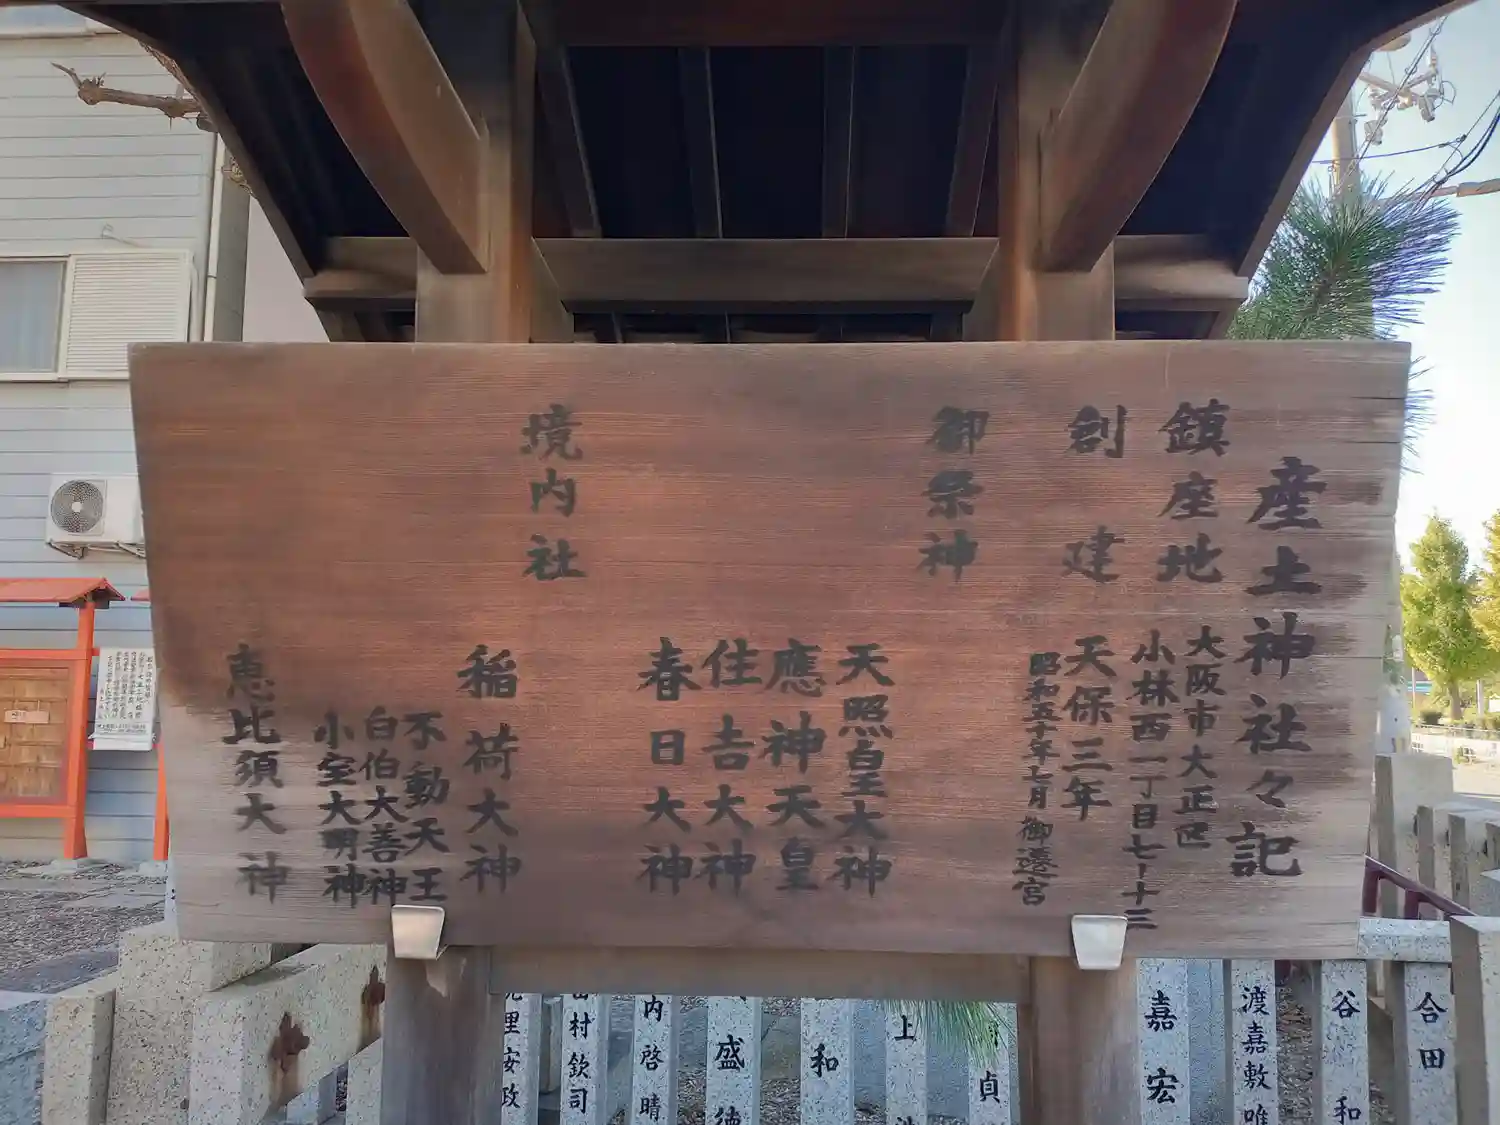 産土神社々記
鎮座地
大阪市大正区
小林西一丁目七-十三
創建
天保三年
昭和五十年七月 御遷宮
御祭神
天照皇大神
應神天皇
住吉大神
春日大神
境内社
稲荷大神
不動天王
白伯大善神
小宝大明神
恵比須大神
合田
谷 和
渡嘉敷 唯
嘉 宏
貞
上
和
盛 徳
内 啓 晴
村 欽 司
里 安 政